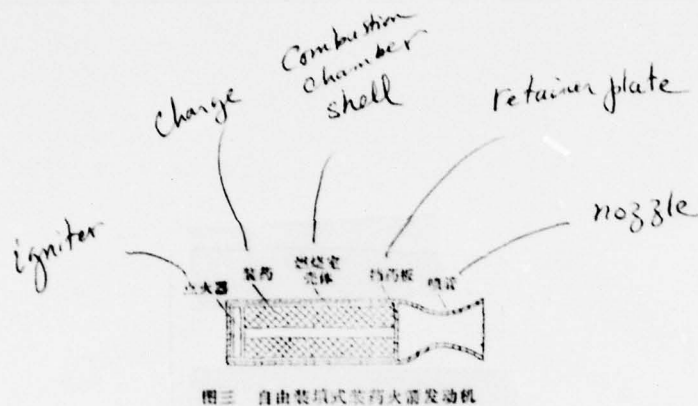 Combustion
chamber
shell
charge
retainer plate
igniter
nozzle
点火器
装药
燃烧室
壳体
挡药板
喷管
图三 自由装填式装药火箭发动机